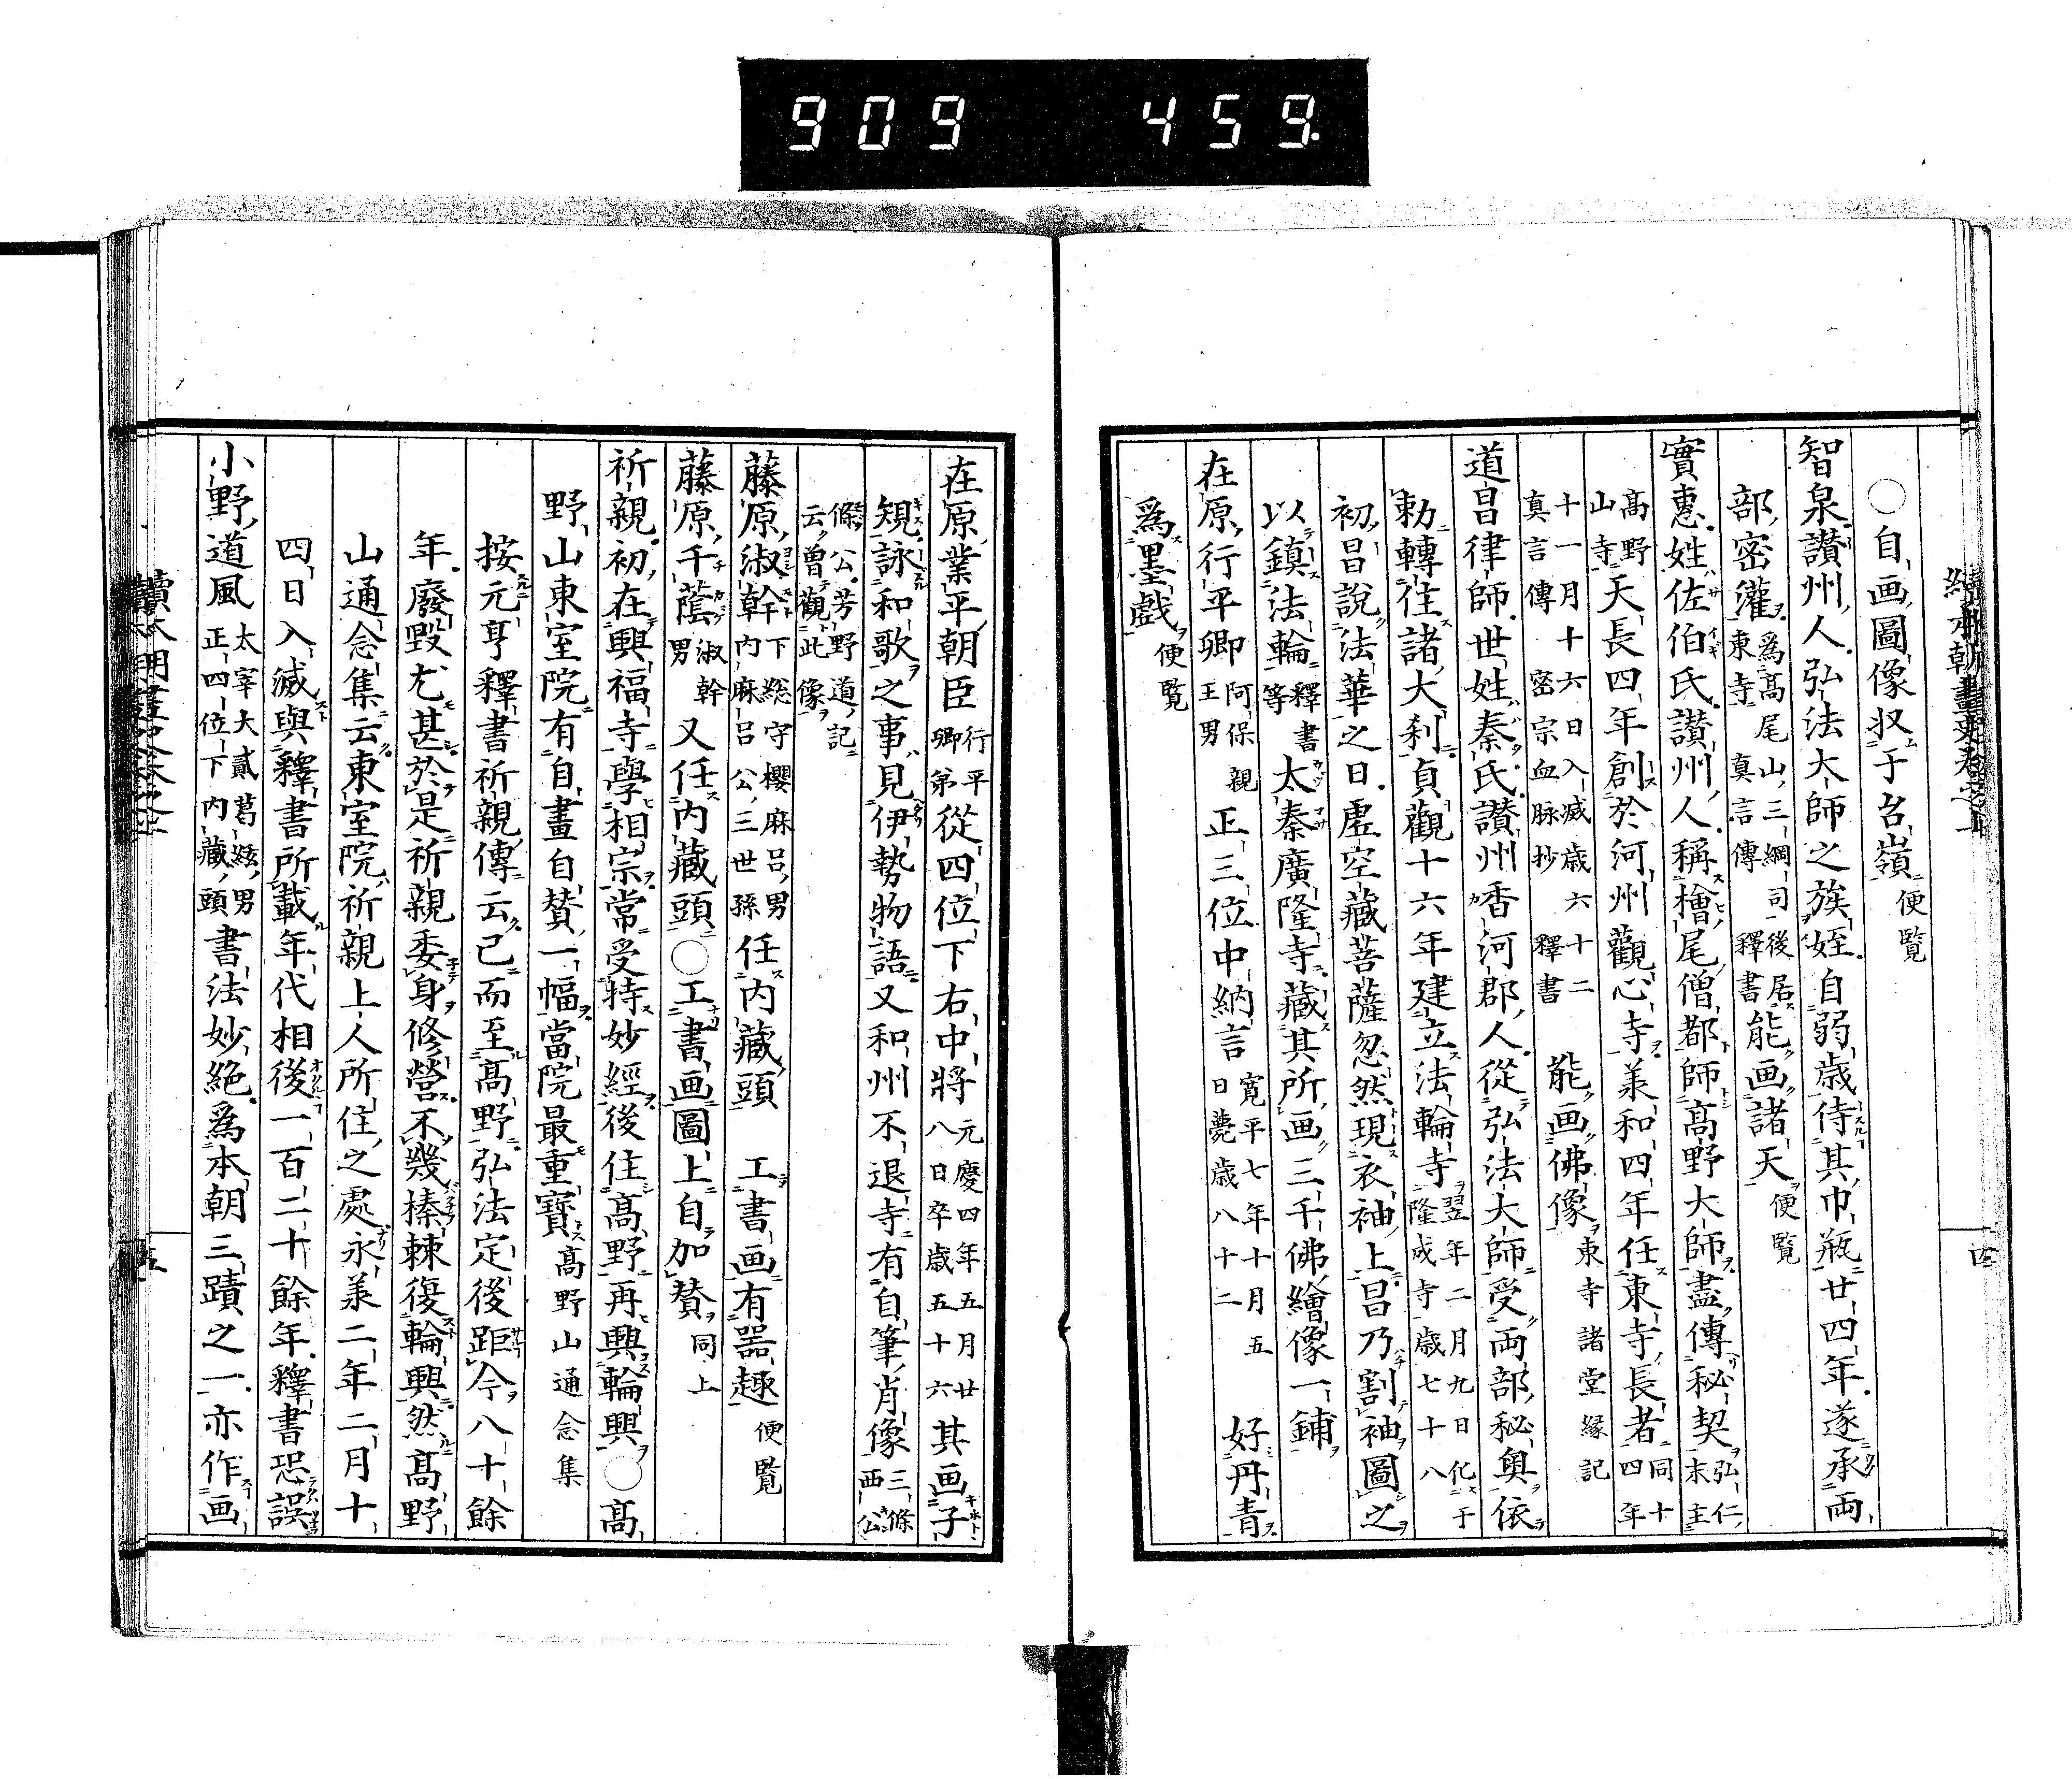 909 459
續本朝畫史卷之上
四
○自画圖像収于台嶺便覧
智泉讃州人弘法大師之族姪自弱歳侍其巾瓶廿四年遂承両
部密灌為髙尾山三綱司後居東寺真言傳釋書能画諸天便覧
實惠姓佐伯氏讃州人稱檜尾僧都師髙野大師盡傳秘契弘仁末主
髙野山寺天長四年創於河州觀心寺羕和四年任東寺長者同十四年
十一月十六日入滅歳六十二真言傳密宗血脉抄釋書能画佛像東寺諸堂縁記
道昌律師世姓秦氏讃州香河郡人從弘法大師受両部秘奥依
勅轉住諸大刹貞觀十六年建立法輪寺翌年二月九日化于隆成寺歳七十八
初昌說法華之日虚空藏菩薩忽然現衣袖上昌乃割袖圖之
以鎮法輪釋書等太秦廣隆寺藏其所画三千佛繪像一鋪
在原行平卿阿保親王男正三位中納言寛平七年十月五日薨歳八十二好丹青
為墨戯便覧
在原業平朝臣行平卿第從四位下右中將元慶四年五月廿八日卒歳五十六其画子
規詠和歌之事見伊勢物語又和州不退寺有自筆肖像三條西公
條公芳野道記云曽觀此像
藤原淑幹下総守櫻麻呂男内麻呂公三世孫任内藏頭工書画有噐趣便覧
藤原千蔭淑幹男又任内藏頭○工書画圖上自加賛同上
祈親初在興福寺學相宗常受持妙經後住髙野再興輪興○髙
野山東室院有自畫自賛一幅當院最重寳髙野山通念集
按元亨釋書祈親傳云已而至髙野弘法定後距今八十餘
年廢毀尤甚於是祈親委身修營不幾榛棘復輪興然髙野
山通念集云東室院祈親上人所住之處永羕二年二月十
四日入滅與釋書所載年代相後一百二十餘年釋書恐誤
小野道風太宰大貳葛絃男正四位下内藏頭書法妙絶為本朝三蹟之一亦作画
續本朝畫史卷之上
五